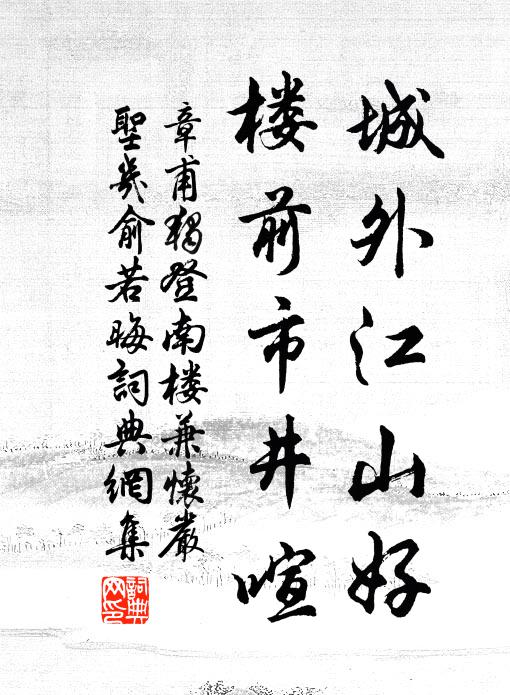 城外江山好
楼前市井喧
章甫独登南楼兼懷嚴
聖幾俞若晦詞典網集
詞典
网印